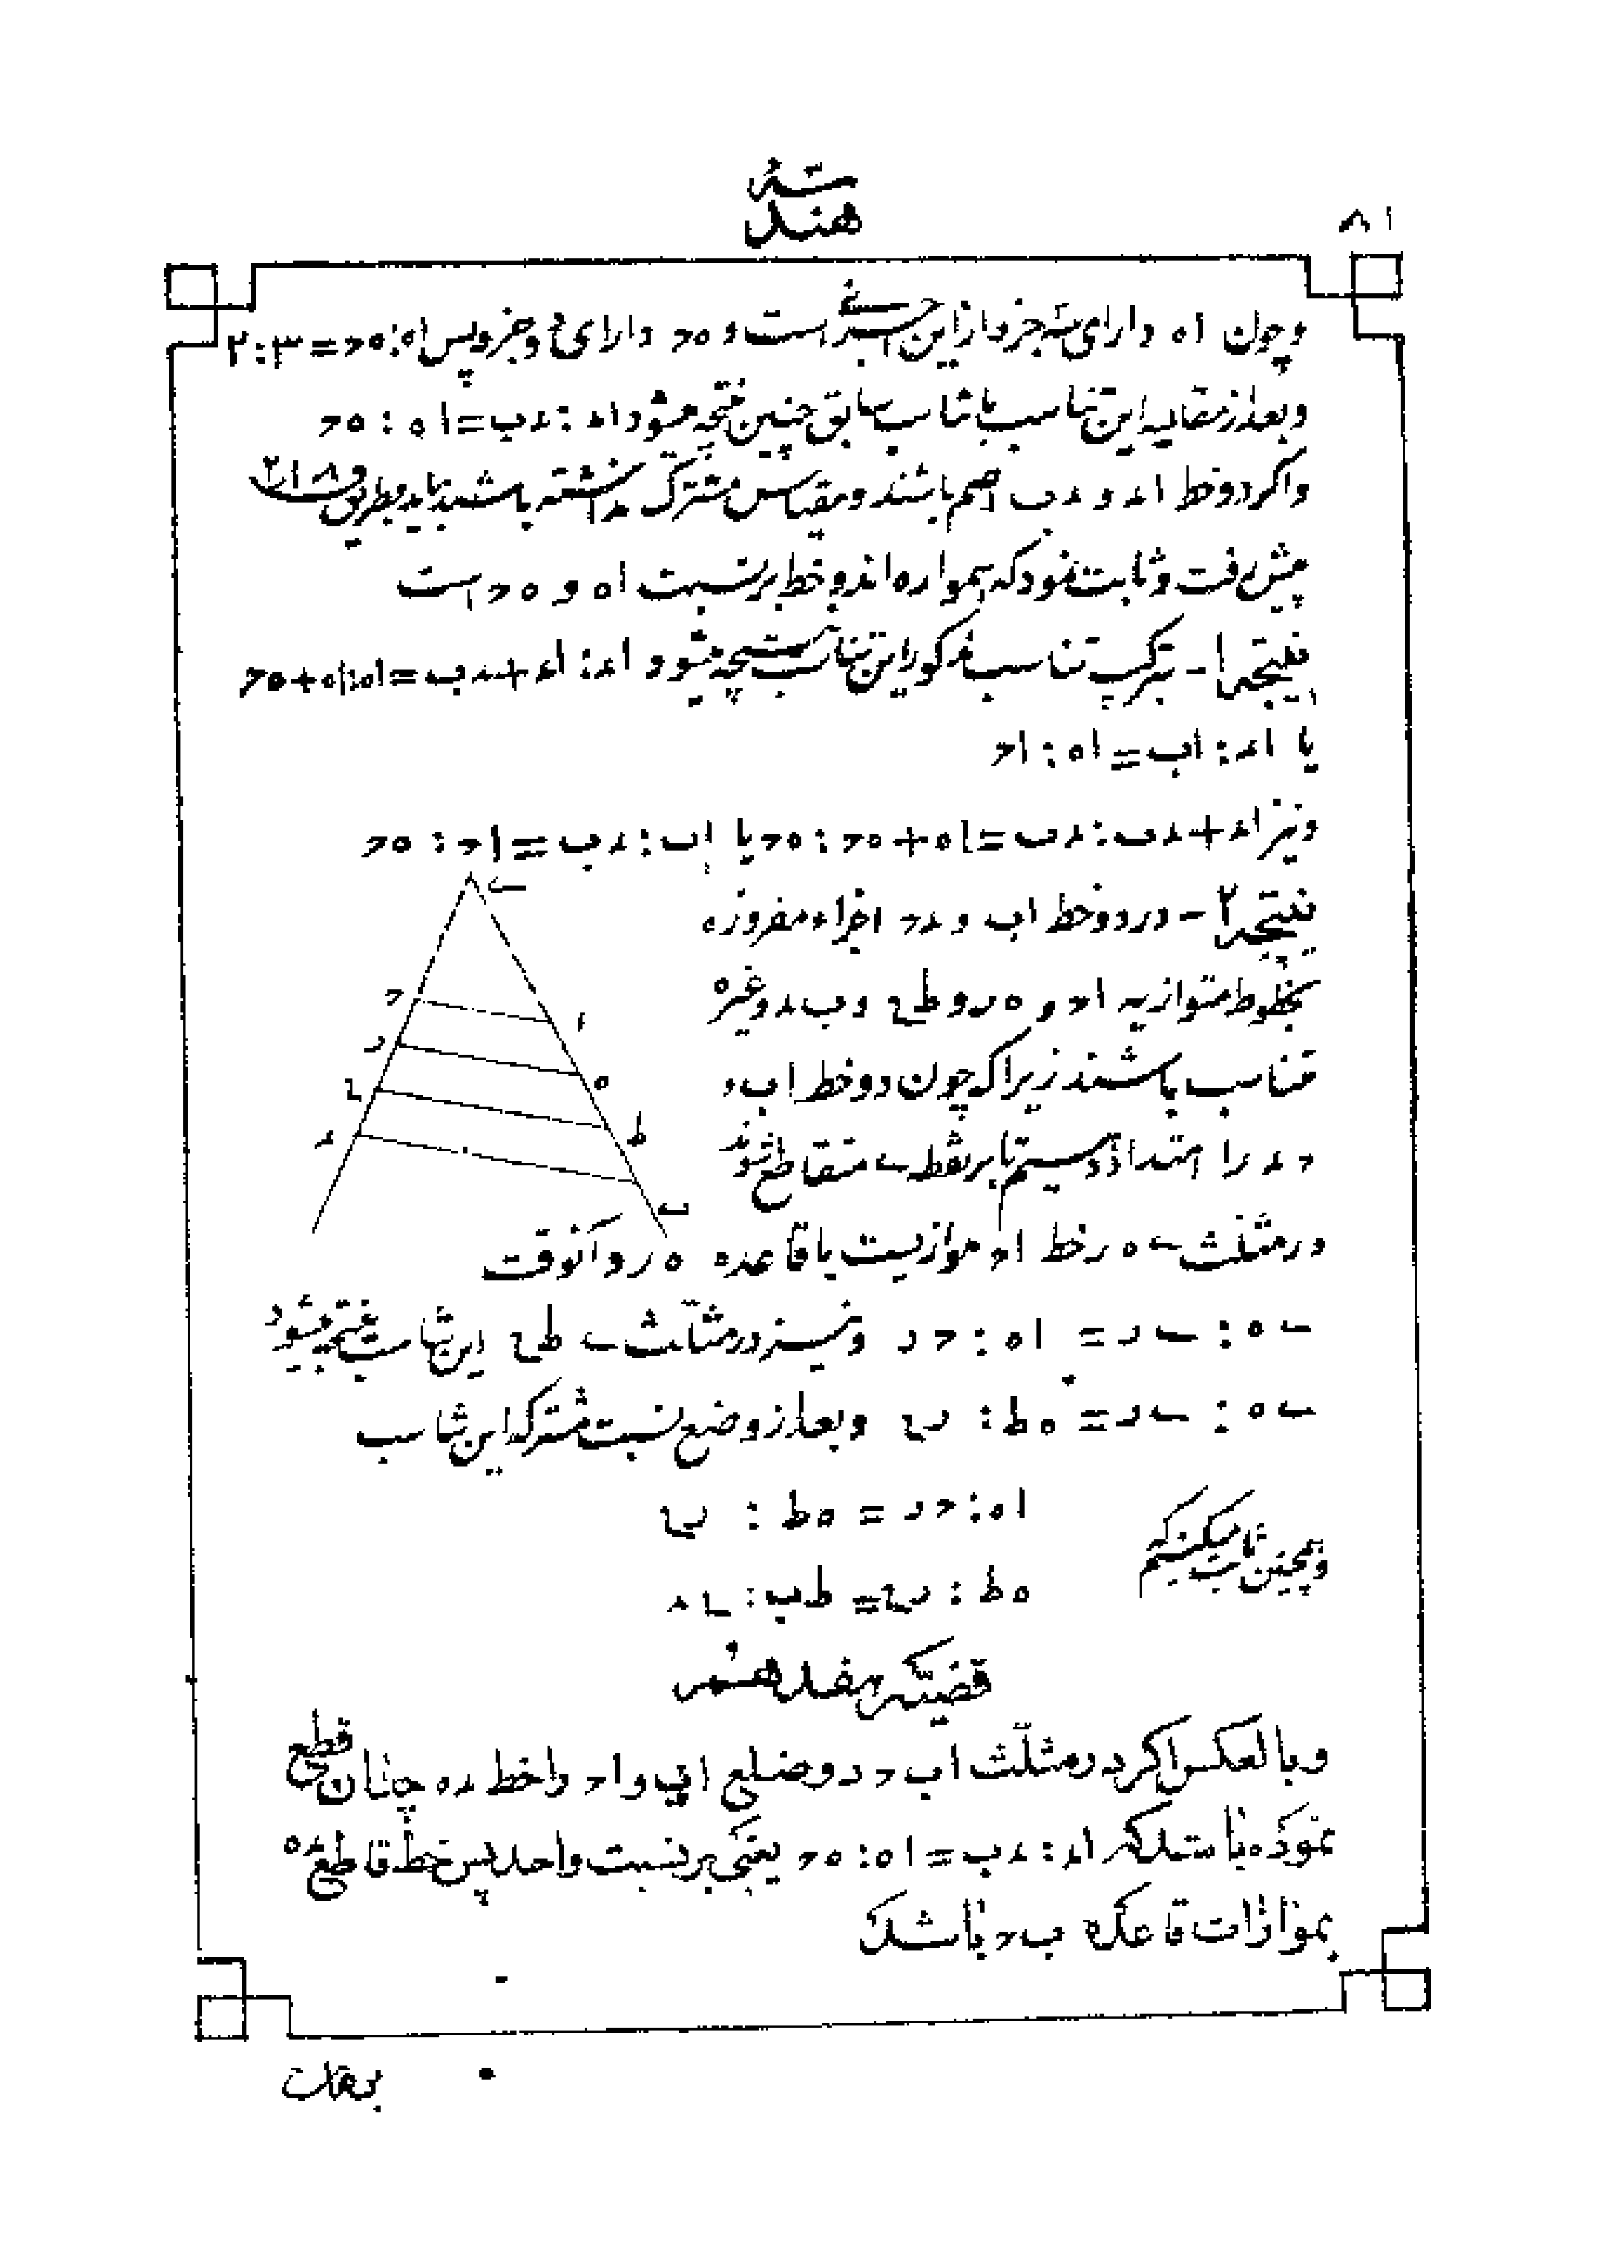 هندسه
۸۱
و چون اه دارای سه جزو از این اجزاست و ه‍ح دارای دو جزو پس اه:ه‍ح=۳:۲
و بعد از مقایسه این تناسب با تناسب سابق چنین نتیجه میشود اء:ءب=اه:ه‍ح
و اگر دو خط اء و ءب اصم باشند و مقیاس مشترک نداشته باشند باید بطریق
پیش رفت و ثابت نمود که همواره اند و خط بر نسبت اه و ه‍ح است
نتیجه ۱- بترکیب تناسب مذکور این تناسب نتیجه میشود اء:اء+ءب=اه:اه+ه‍ح
یا اء:اب=اه:اح
و نیز اء+ءب:ءب=اه+ه‍ح:ه‍ح یا اب:ءب=اح:ه‍ح
نتیجه ۲- در دو خط اب و ءح اجزاء مفروزه
بخطوط متوازیه اح و ه‍ر و طی و بء و غیره
متناسب باشند زیرا که چون دو خط اب و
حء را امتداد دهیم تا بر نقطه ے متقاطع شوند
در مثلث ے ه ر خط اح موازیست با قاعده ه ر و آنوقت
ے ه : ے ر = اه : ح ر و نیز در مثلث ے طی این تناسب نتیجه میشود
ے ه : ے ر = ه ط : ری و بعد از وضع نسبت مشترکه این تناسب
اه : ح ر = ه ط : ری
و همچنین ثابت میکنیم که
ه ط : ری = طب : یء
قضیه هفدهم
و بالعکس اگر در مثلث اب ح دو ضلع اب و اح را خط ءه چنان قطع
نموده باشد که اء:ءب=اه:ه‍ح یعنی بر نسبت واحد پس خط قاطع ءه
بموازات قاعده ب ح باشد
برهان
ے
ح
ا
ر
ه
ی
ط
ء
ب